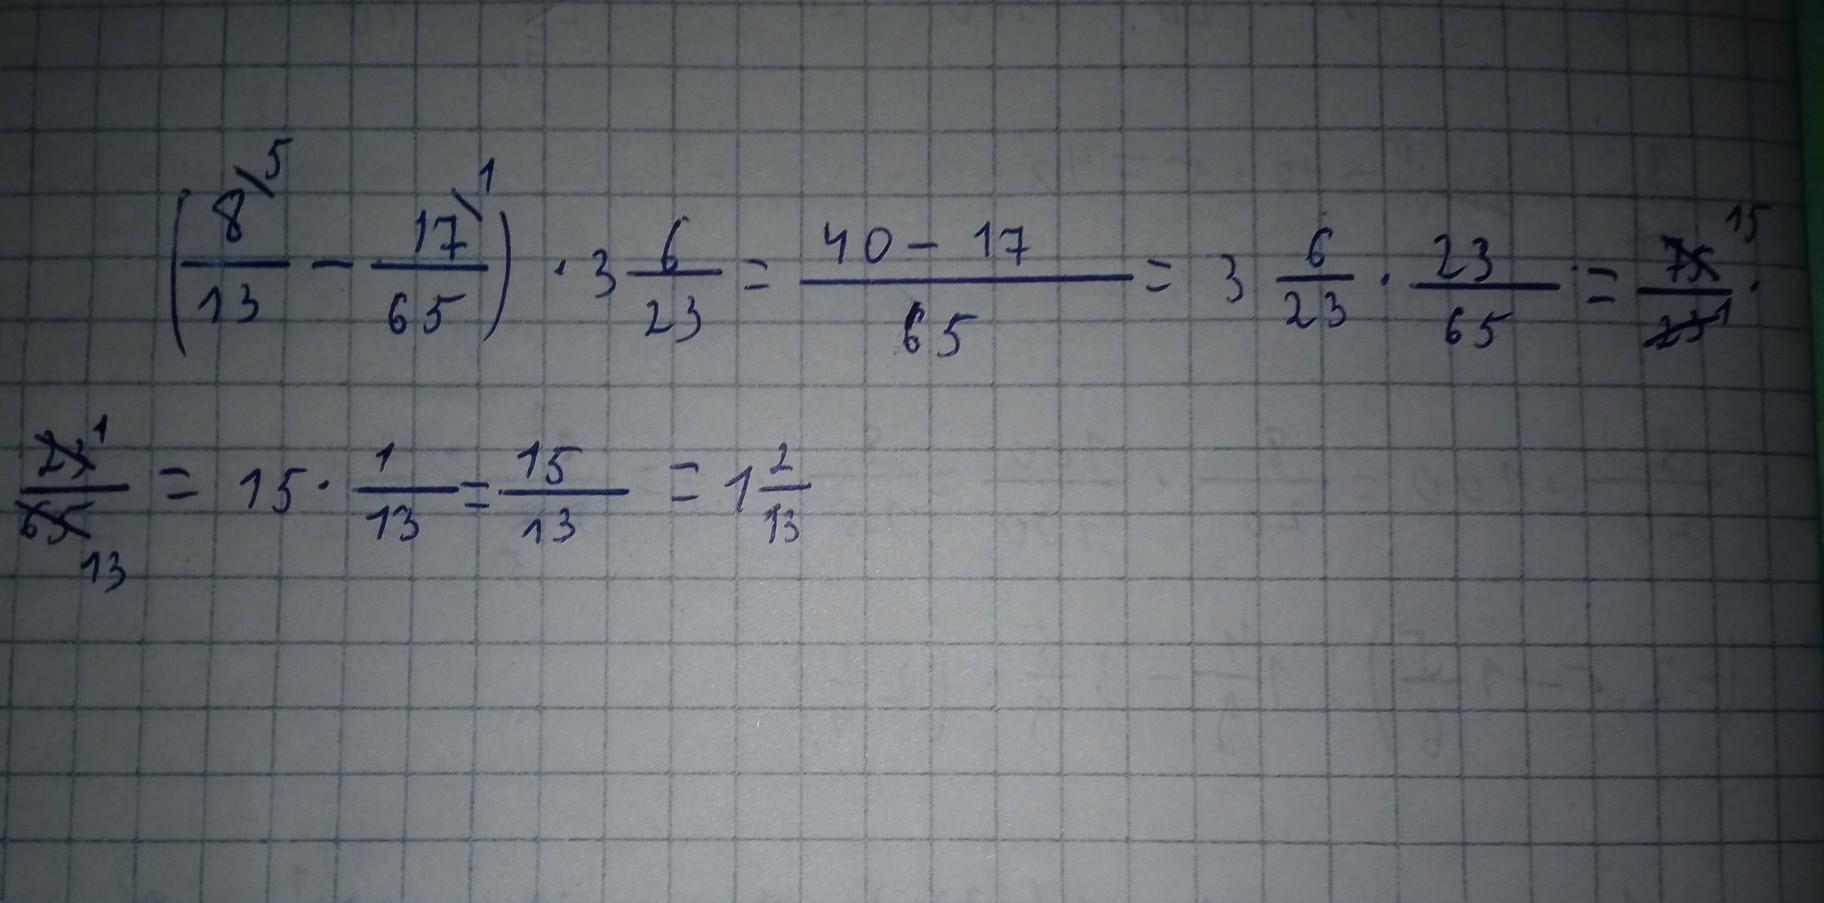 (8/13 \5 − 17/65 \1) · 3 6/23 = (40 − 17)/65 = 3 6/23 · 23/65 = 75/23 15 1 ·
23/65 1 13 = 15 · 1/13 = 15/13 = 1 2/13